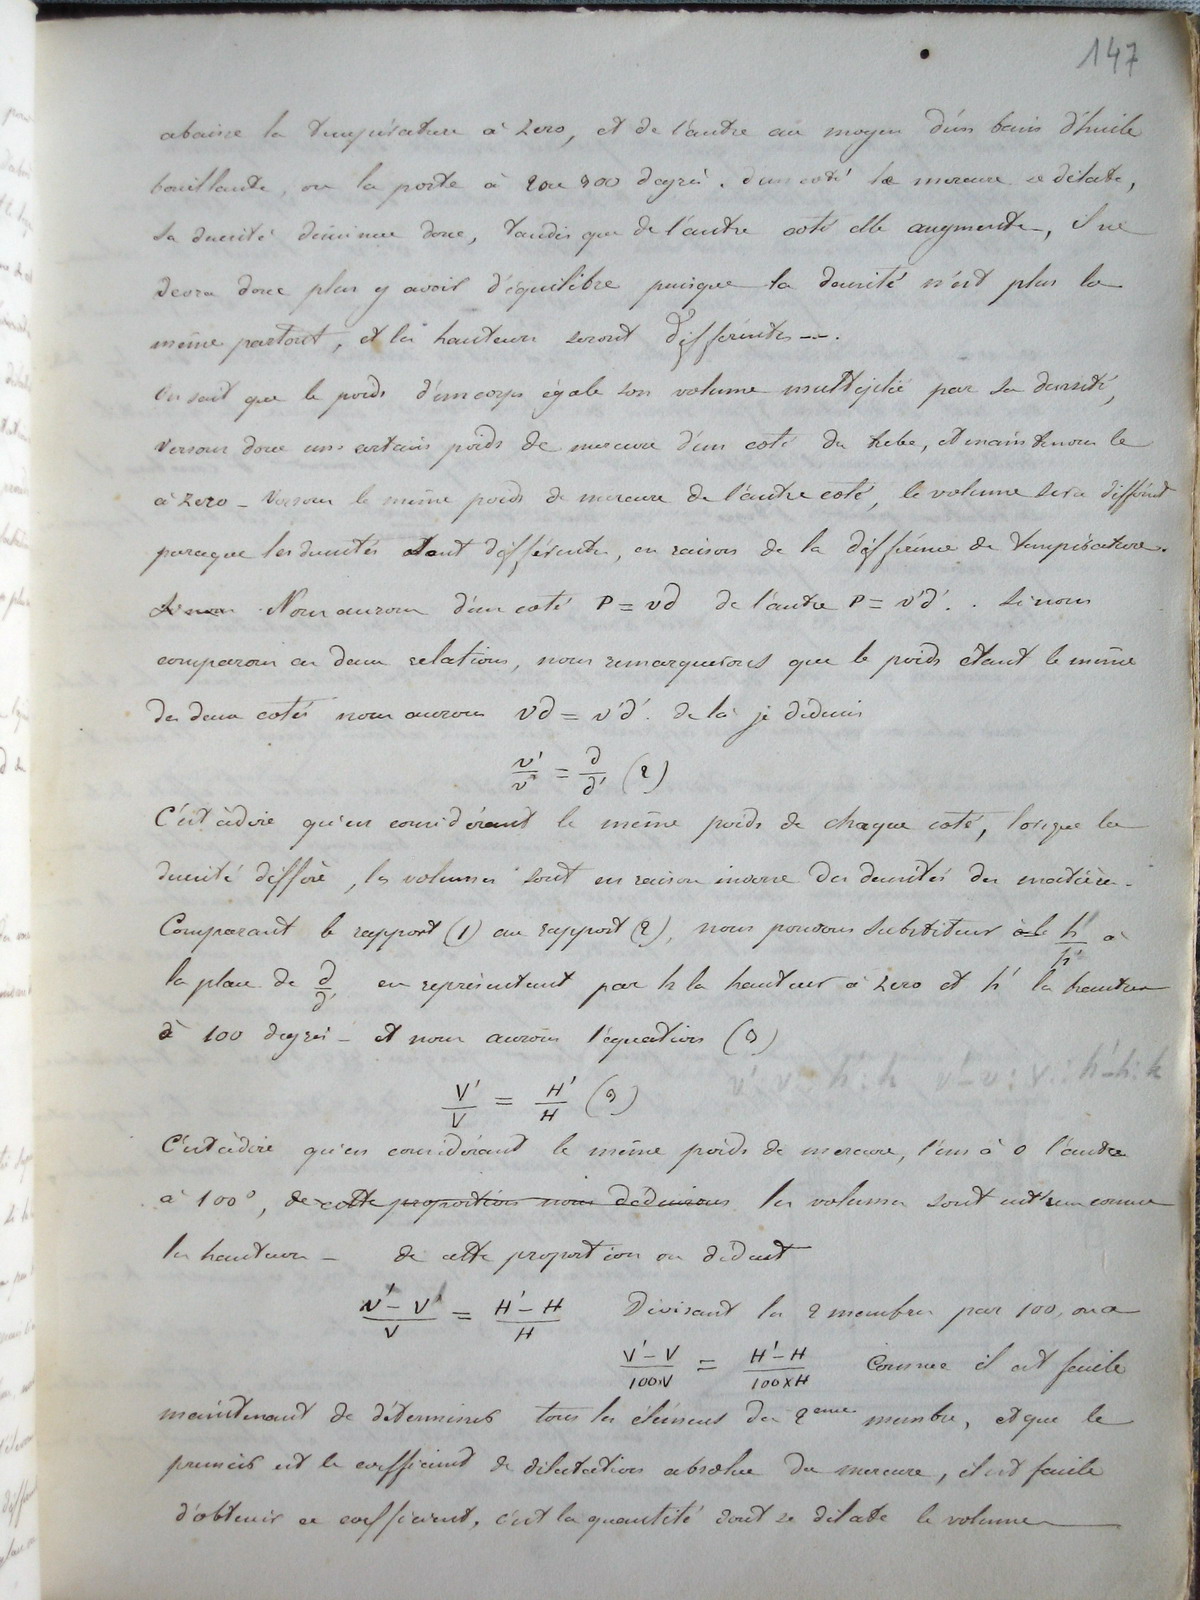 147
abaisse la température à zéro, et de l'autre au moyen d'un bain d'huile
bouillante, on la porte à 2 ou 300 degrés. d'un coté le mercure se dilate,
sa densité diminue donc, tandis que de l'autre coté elle augmente, il ne
devra donc plus y avoir d'équilibre puisque la densité n'est plus la
même partout, et les hauteurs seront différentes —.
On sait que le poids d'un corps égale son volume multiplié par sa densité,
versons donc un certain poids de mercure d'un coté du tube, et maintenons le
à zéro – Versons le même poids de mercure de l'autre coté, le volume sera différent
parceque les densités étant différentes, en raison de la différence de température.
Si nous Nous aurons d'un coté P = vd de l'autre P = v'd'. Si nous
comparons ces deux relations, nous remarquerons que le poids étant le même
des deux cotés nous aurons vd = v'd'. de là je déduis
v'/v = d/d' (2)
C'est à dire qu'en considérant le même poids de chaque coté, lorsque la
densité diffère, les volumes sont en raison inverse des densités des matières.
Comparant le rapport (1) au rapport (2), nous pouvons substituer h'/h à
la place de d/d' en représentant par h la hauteur à zéro et h' la hauteur
à 100 degrés – et nous aurons l'équation (3)
h:h'::v:v' h:h'-h::v:v'-v
V'/V = H'/H (3)
C'est à dire qu'en considérant le même poids de mercure, l'un à 0 l'autre
à 100°, de cette proportion nous déduirons les volumes sont entr'eux comme
les hauteurs – de cette proportion on déduit
V'-V/V = H'-H/H Divisant les 2 membres par 100, on a
V'-V/100.V = H'-H/100xH Comme il est facile
maintenant de déterminer tous les éléments du 2eme membre, et que le
premier est le coefficient de dilatation absolue du mercure, il est facile
d'obtenir ce coefficient. c'est la quantité dont se dilate le volume